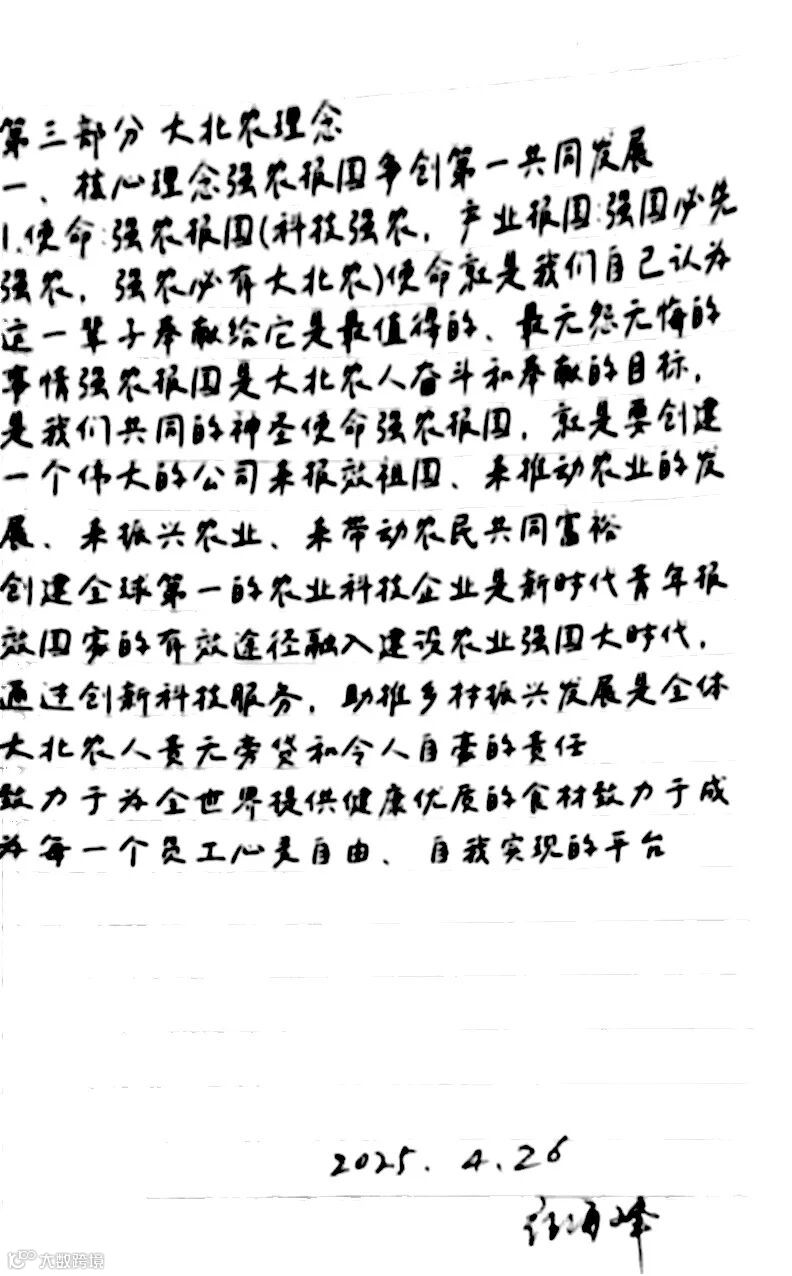 第三部分 大北农理念
一、核心理念强农报国争创第一共同发展
1.使命:强农报国(科技强农,产业报国:强国必先
强农,强农必有大北农)使命就是我们自己认为
这一辈子奉献给它是最值得的、最无怨无悔的
事情强农报国是大北农人奋斗和奉献的目标,
是我们共同的神圣使命强农报国,就是要创建
一个伟大的公司来报效祖国、来推动农业的发
展、来振兴农业、来带动农民共同富裕
创建全球第一的农业科技企业是新时代青年报
效国家的有效途径融入建设农业强国大时代,
通过创新科技服务,助推乡村振兴发展是全体
大北农人责无旁贷和令人自豪的责任
致力于为全世界提供健康优质的食材致力于成
为每一个员工心灵自由、自我实现的平台
2025.4.26
大数跨境